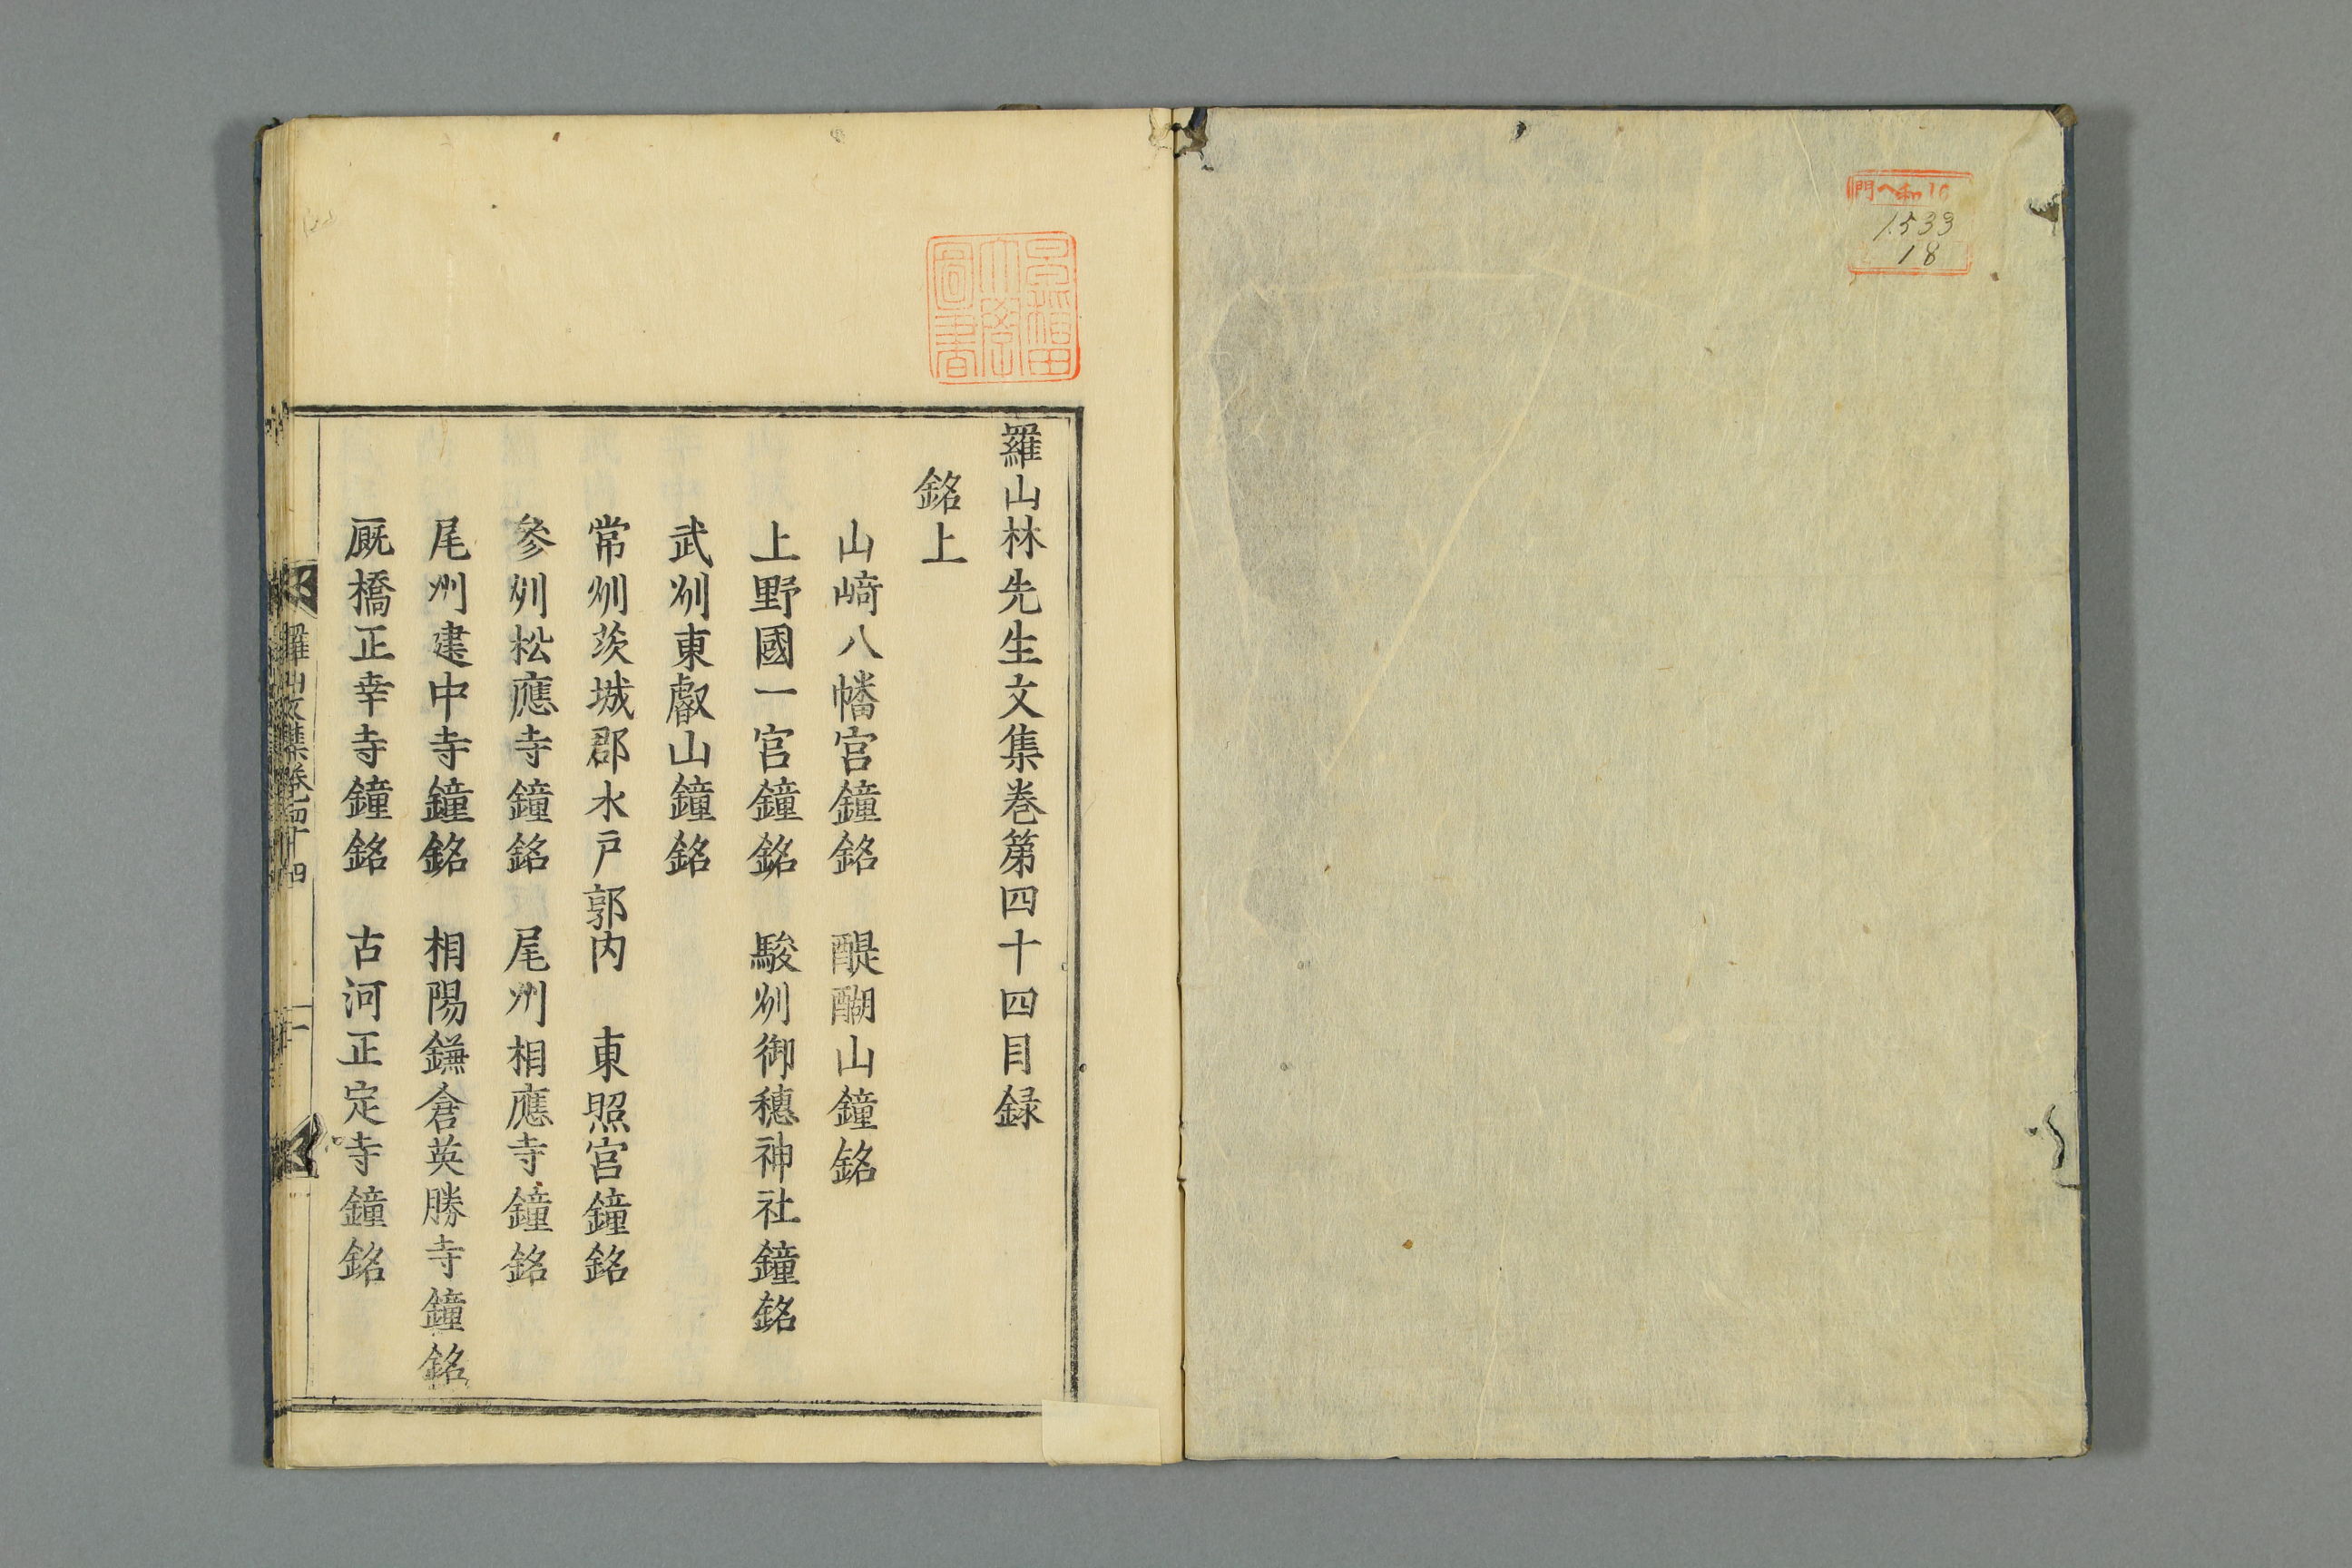 門 ヘ 和 10
1533
18
早稲田大學圖書
羅山林先生文集巻第四十四目録
銘上
山﨑八幡宮鐘銘　醍醐山鐘銘
上野國一宮鐘銘　駿刕御穗神社鐘銘
武刕東叡山鐘銘
常刕茨城郡水戸郭内　東照宮鐘銘
參刕松應寺鐘銘　尾州相應寺鐘銘
尾州建中寺鐘銘　相陽鎌倉英勝寺鐘銘
厩橋正幸寺鐘銘　古河正定寺鐘銘
羅山文集巻四十四　一